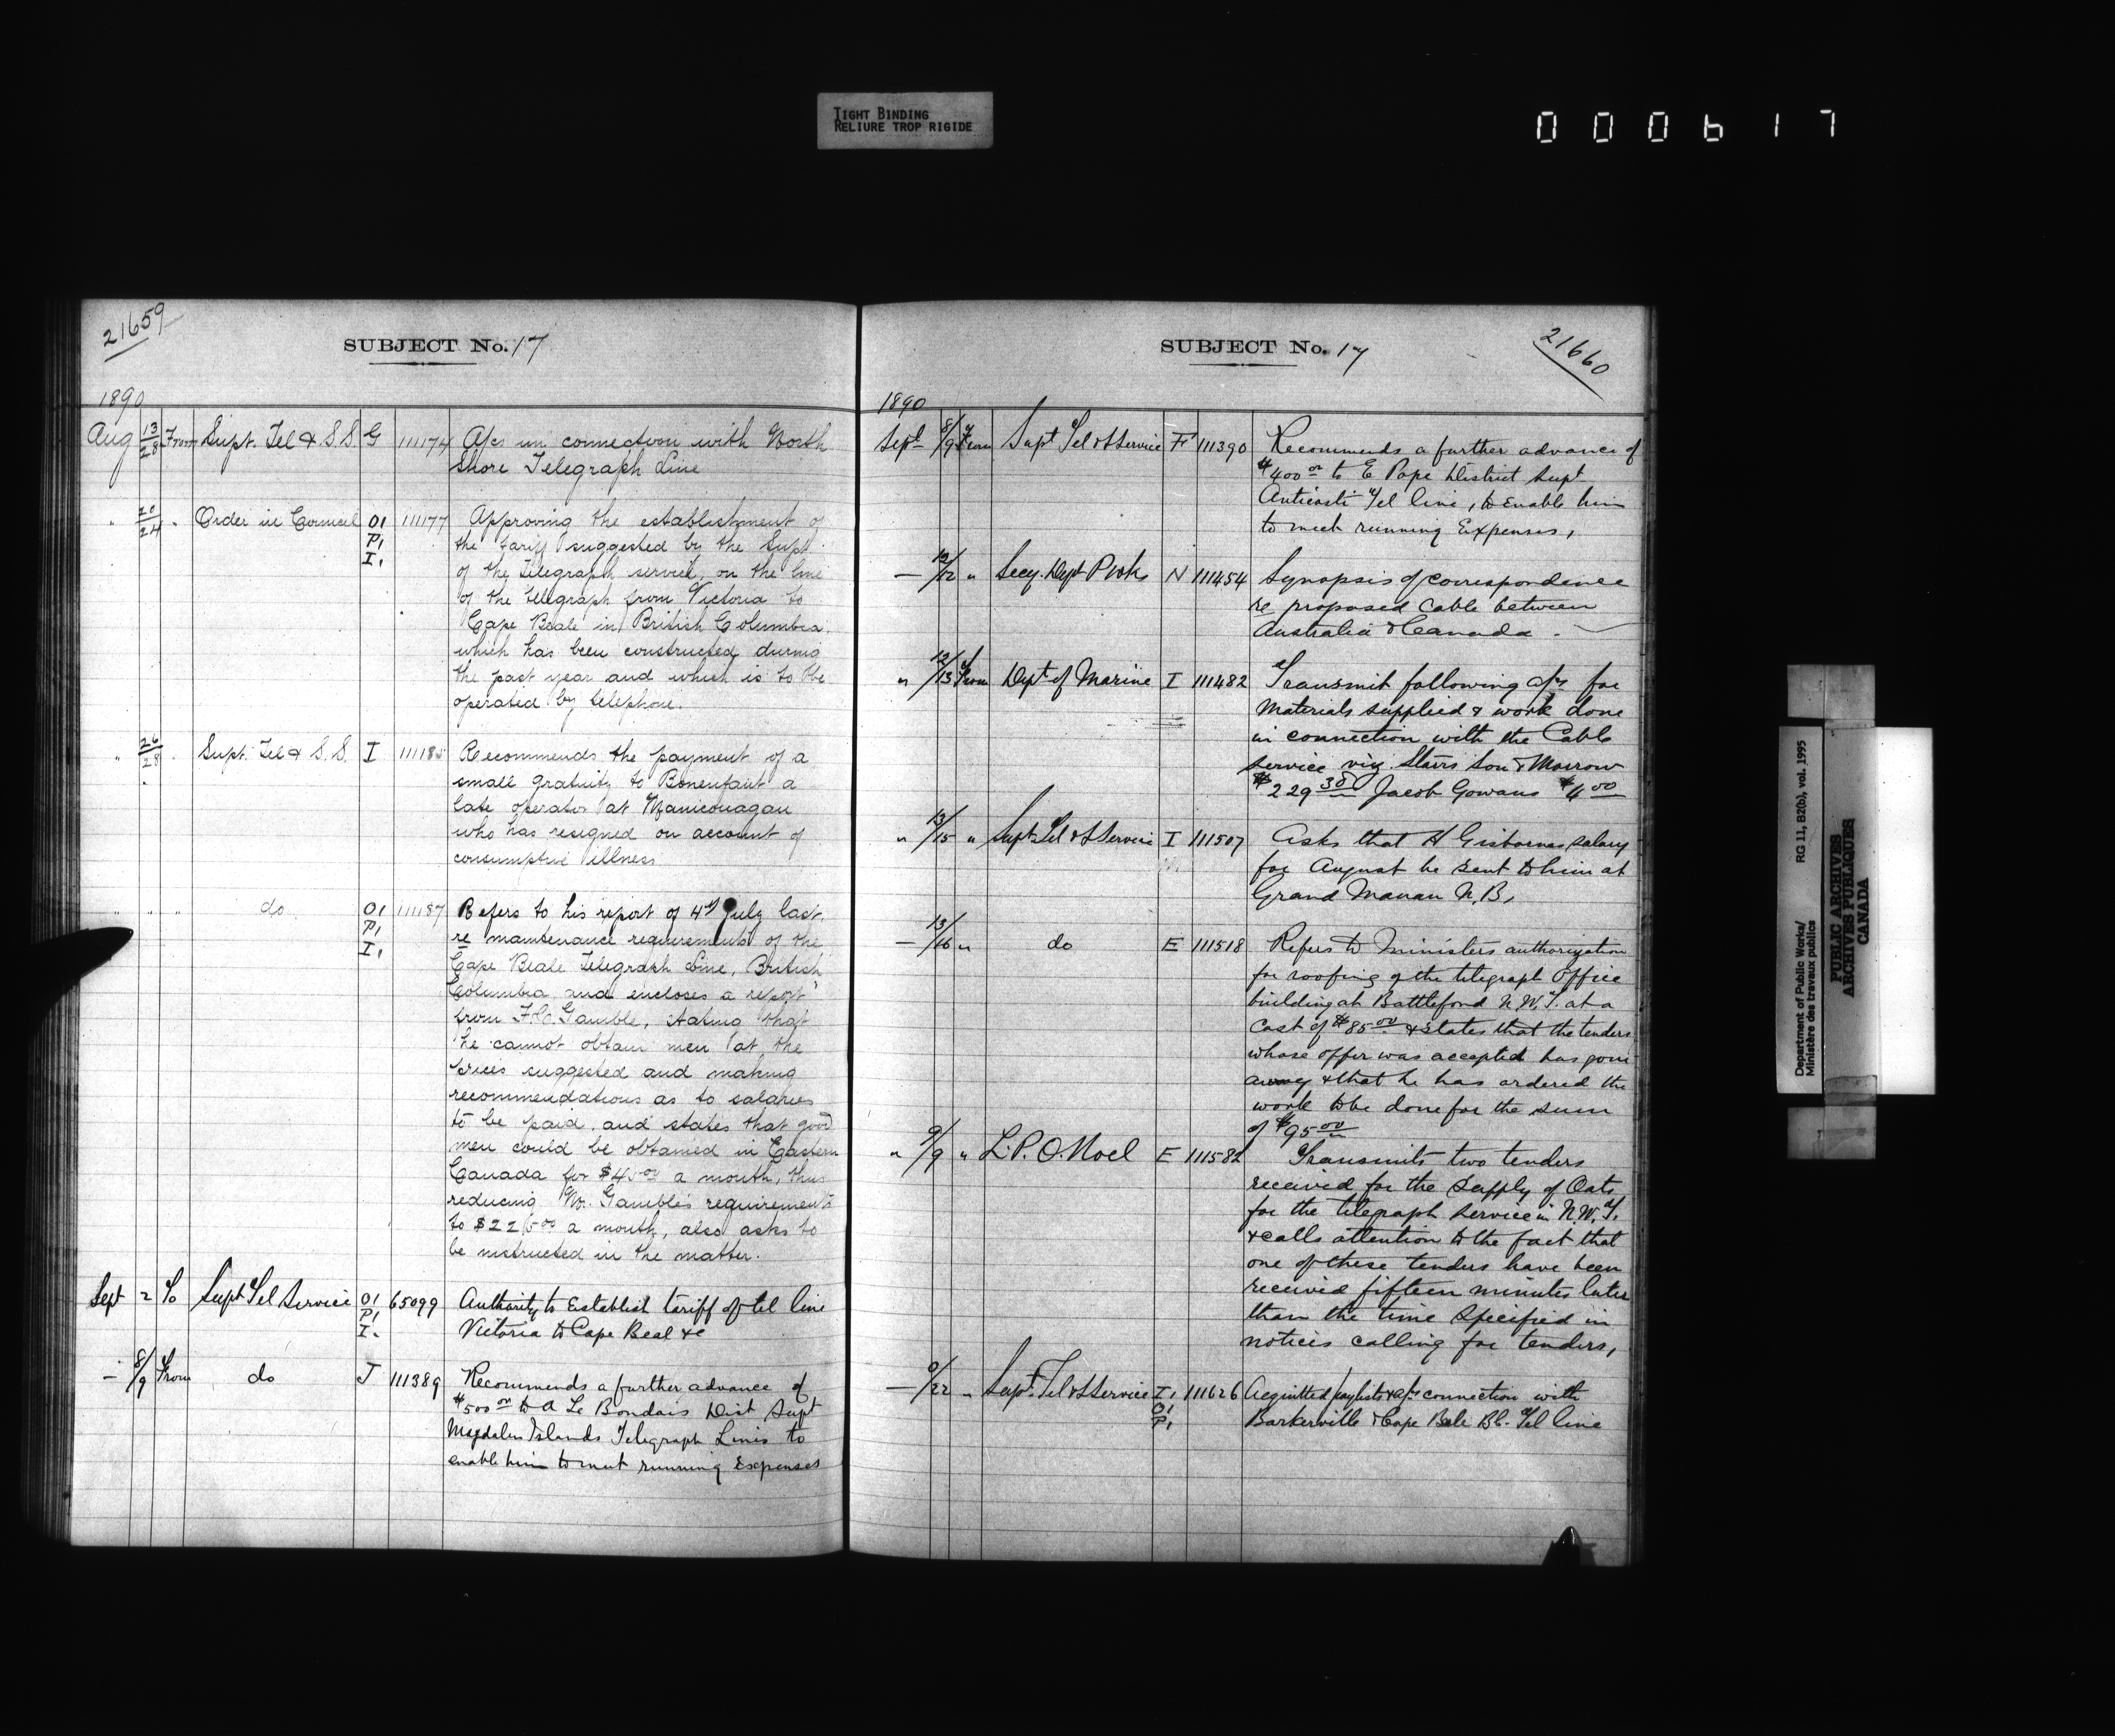 TIGHT BINDING
RELIURE TROP RIGIDE
000617
21659
SUBJECT No. 17
1890
Aug 13/28 From Supt. Tel & S.S. G 111174 A/cs in connection with North
Shore Telegraph Line
" 20/24 " Order in Council O1 111177 Approving the establishment of
P1 the tariff suggested by the Supt
I1 of the Telegraph service, on the line
of the telegraph from Victoria to
Cape Beale in British Columbia
which has been constructed during
the past year and which is to be
operated by telephone.
" 26/28 " Supt. Tel & S.S. I 111185 Recommends the payment of a
small gratuity to Bonenfant a
late operator at Manicouagan
who has resigned on account of
consumptive illness
" " " do O1 111187 Refers to his report of 4th July last,
P1 re maintenance requirements of the
I1 Cape Beale Telegraph Line, British
Columbia and encloses a report
from F.C. Gamble, stating that
he cannot obtain men at the
prices suggested and making
recommendations as to salaries
to be paid, and states that good
men could be obtained in Eastern
Canada for $45.00 a month, thus
reducing Mr. Gamble's requirements
to $225.00 a month, also asks to
be instructed in the matter.
Sept 2 To Supt Tel Service O1 65099 Authority to Establish tariff of tel line
P1 Victoria to Cape Beal &c
I.
— 8/9 From do J 111389 Recommends a further advance of
$500 00 to A Le Bondais Dist Supt
Magdalen Islands Telegraph Lines to
enable him to meet running Expenses
SUBJECT No. 17
21660
1890
Sept 8/9 From Supt Tel & S Service F 111390 Recommends a further advance of
$400 00 to E Pope District Supt
Anticosti Tel line, to enable him
to meet running Expenses,
— 12/12 " Secy. Dept P Wks N 111454 Synopsis of correspondence
re proposed Cable between
Australia & Canada.
" 12/13 From Dept of Marine I 111482 Transmit following a/cs for
Materials supplied & work done
in connection with the Cable
service viz. Starrs Son & Morrow
$229 30 Jacob Gowans $4 00
" 13/15 " Supt Tel & S Service I 111507 Asks that H Gisbornes salary
for August be sent to him at
Grand Manan N.B,
— 13/16 " do E 111518 Refers to Ministers authorization
for roofing of the telegraph Office
building at Battleford N.W.T. at a
Cost of $85 00 & States that the tenders
whose offer was accepted has gone
away & that he has ordered the
work to be done for the sum
of $95 00
" 9/9 " L.P.O. Noel E 111582 Transmits two tenders
received for the Supply of Oats
for the telegraph Service in N.W.T.
& calls attention to the fact that
one of these tenders have been
received fifteen minutes later
than the time Specified in
notices calling for tenders,
— 9/22 " Supt. Tel & S Service I1 111626 Acquitted paylists & a/cs connection with
O1 Barkerville & Cape Bale BC. Tel line
P1
Department of Public Works/ RG 11, B2(b), vol. 1995
Ministère des travaux publics
PUBLIC ARCHIVES
ARCHIVES PUBLIQUES
CANADA